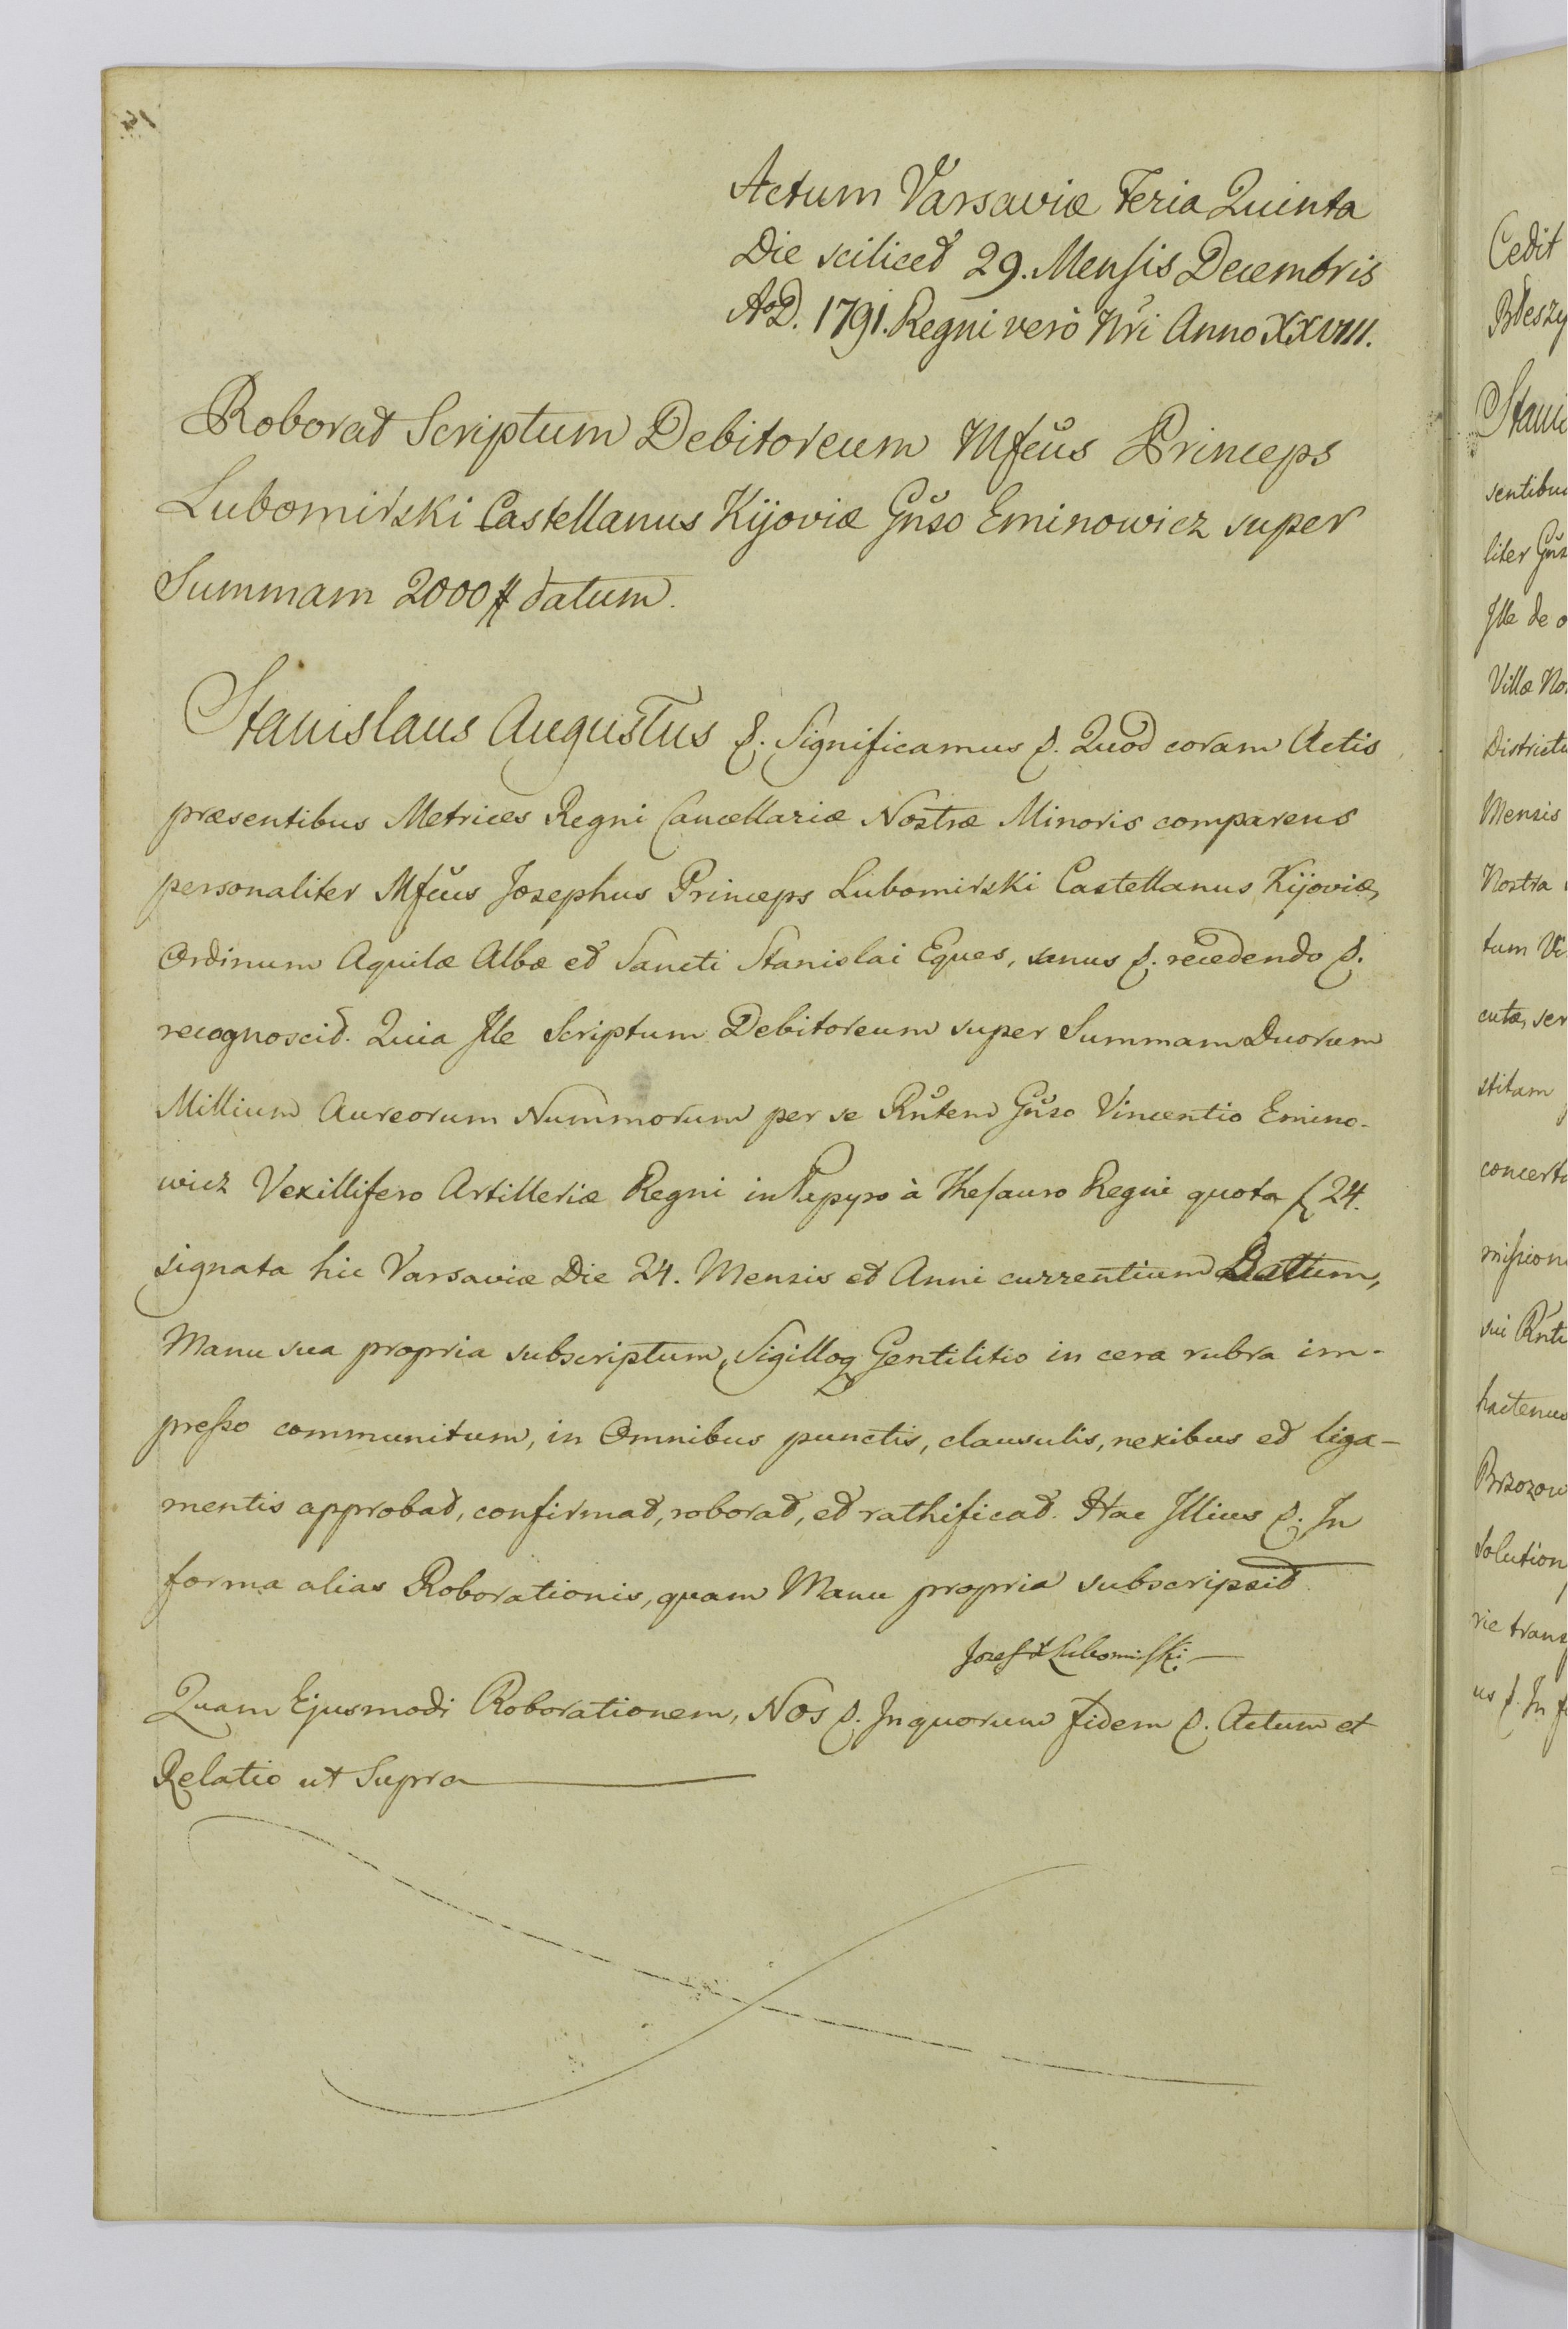 Actum Varsaviæ Feria Quinta
Die scilicet 29. Mensis Decembris
AoD. 1791. Regni verò Nři Anno XXVIII.
Roborat Scriptum Debitoreum Mfcus Princeps
Lubomirski Castellanus Kijoviæ Gnso Eminowicz super
Summam 2000 # datum.
Stanislaus Augustus &. Significamus &. Quod coram Actis
præsentibus Metrices Regni Cancellariæ Nostræ Minoris comparens
personaliter Mfcus Josephus Princeps Lubomirski Castellanus Kijoviæ,
Ordinum Aquilæ Albæ et Sancti Stanislai Eques, sanus &. recedendo &.
recognoscit. Quia Ille Scriptum Debitoreum super Summam Duorum
Millium Aureorum Nummorum per se Rntem Gnso Vincentio Emino-
wicz Vexillifero Artilleriæ Regni in Papyro à Thesauro Regni quota f 24.
signata hic Varsaviæ Die 24. Mensis et Anni currentium Datum,
Manu sua propria subscriptum, Sigilloq Gentilitio in cera rubra im-
presso communitum, in Omnibus punctis, clausulis, nexibus et liga-
mentis approbat, confirmat, roborat, et rathificat. Hac Illius &. In
forma alias Roborationis, quam Manu propria subscripsit.
Jozef X Lubomirski
Quam Ejusmodi Roborationem, Nos &. In quorum fidem &. Actum et
Relatio ut Supra
Cedit
sentibus
liter Gns
Ille de o
Villæ No
Districtu
Mensis
Nostra
tum Vi
cutæ, ser
stitam
concerto
missione
sui Rnte
hactenus
Brzozow
solution
rie trans
us &. In fo